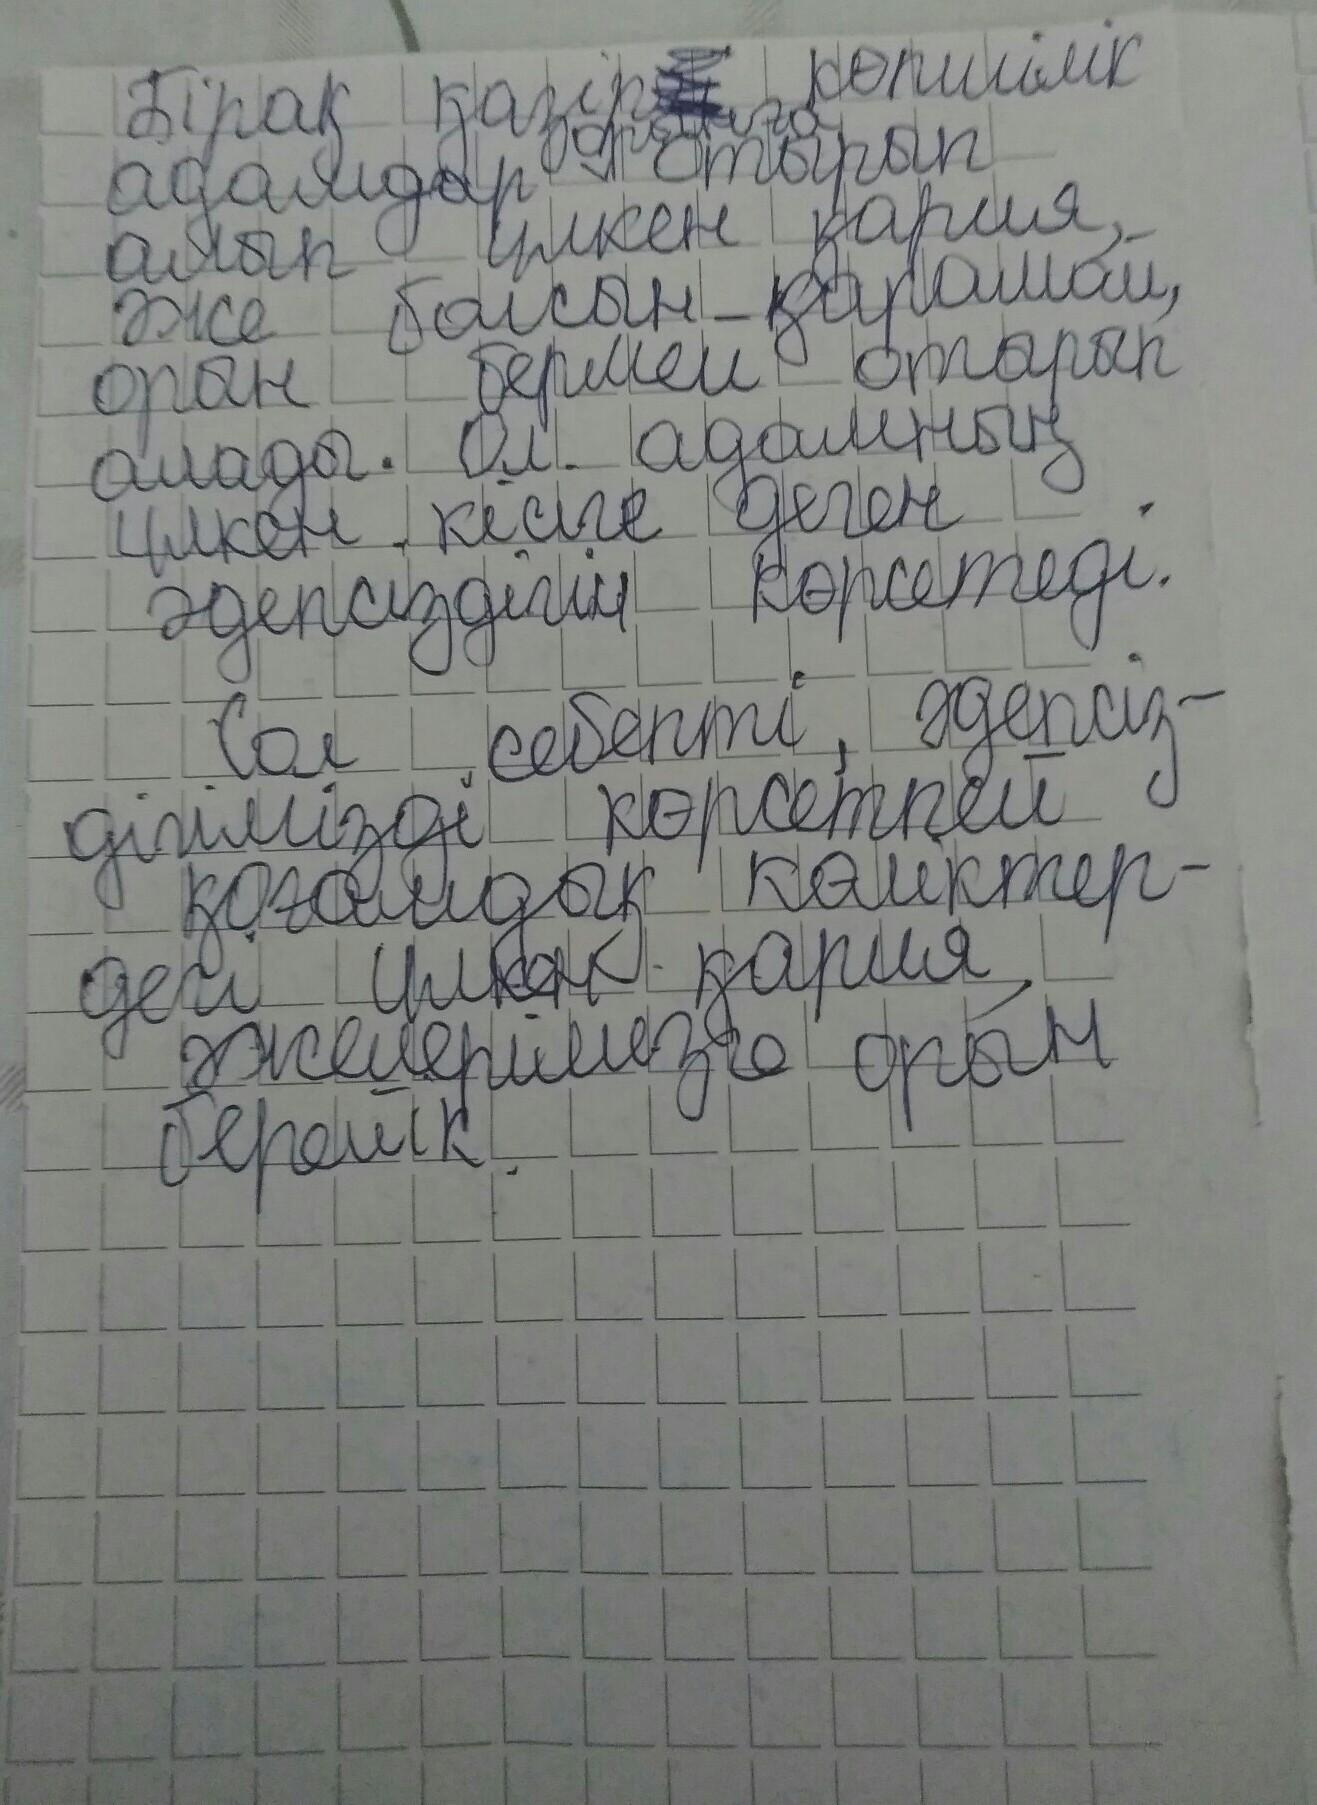 Бірақ қазір көпшілік
адамдар орынға отырып
алып үлкен қария,
әже болсын қарамай,
орын бермей отырып
алады. Ол адамның
үлкен кісіге деген
әдепсіздігін көрсетеді.
Сол себепті, әдепсіз-
дігімізді көрсетпей
қоғамдық көліктер-
дегі үлкен қария
әжелерімізге орын
берейік.